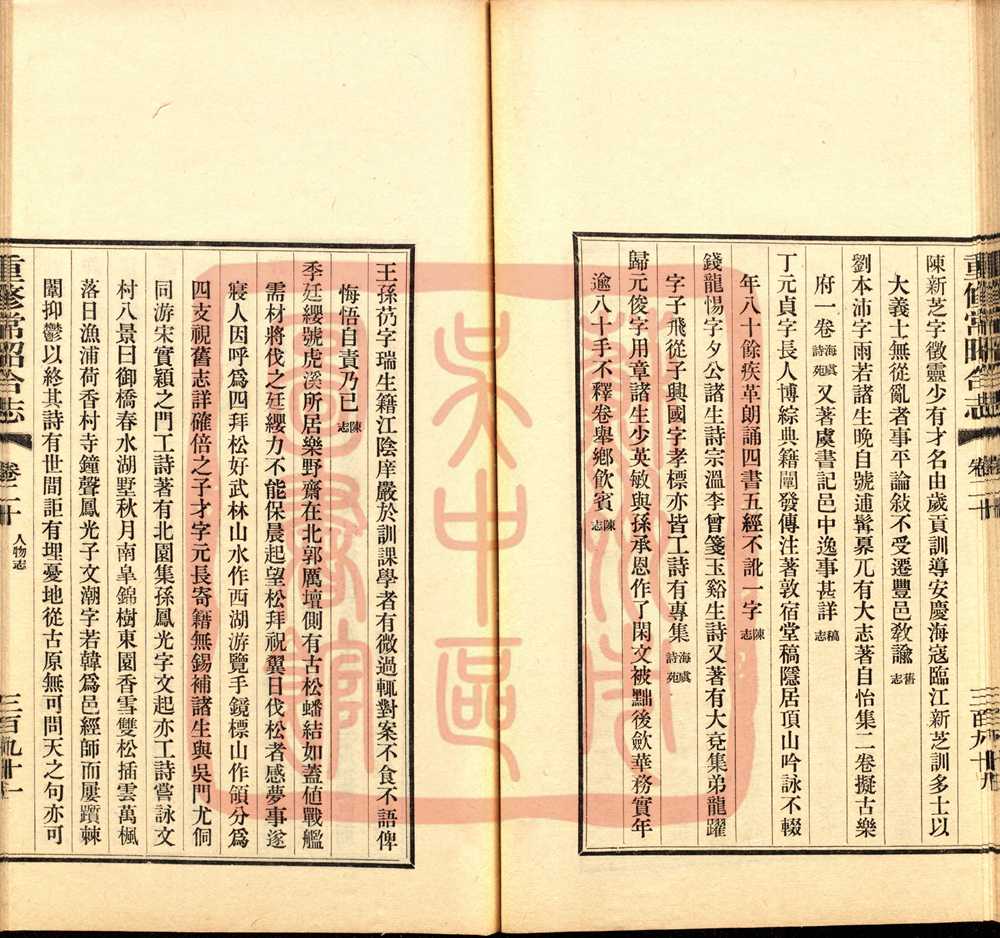 陳新芝字徵靈少有才名由歲貢訓導安慶海寇臨江新芝訓多士以
大義士無從亂者事平論敍不受遷豐邑敎諭舊志
劉本沛字雨若諸生晚自號逋髯驀兀有大志著自怡集二卷擬古樂
府一卷海虞詩苑又著虞書記邑中逸事甚詳稿志
丁元貞字長人博綜典籍闡發傳注著敦宿堂稿隱居頂山吟詠不輟
年八十餘疾革朗誦四書五經不訛一字陳志
錢龍惕字夕公諸生詩宗溫李曾箋玉谿生詩又著有大兗集弟龍躍
字子飛從子興國字孝標亦皆工詩有專集海虞詩苑
歸元俊字用章諸生少英敏與孫承恩作了閑文被黜後歛華務實年
逾八十手不釋卷舉鄕飮賓陳志
王孫芿字瑞生籍江陰庠嚴於訓課學者有微過輒對案不食不語俾
悔悟自責乃已陳志
季廷纓號虎溪所居樂野齋在北郭厲壇側有古松蟠結如蓋値戰艦
需材將伐之廷纓力不能保晨起望松拜祝翼日伐松者感夢事遂
寢人因呼爲四拜松好武林山水作西湖游覽手鏡標山作領分爲
四支視舊志詳確倍之子才字元長寄籍無錫補諸生與吳門尤侗
同游宋實穎之門工詩著有北園集孫鳳光字文起亦工詩嘗詠文
村八景曰御橋春水湖墅秋月南皐錦樹東園香雪雙松揷雲萬楓
落日漁浦荷香村寺鐘聲鳳光子文潮字若韓爲邑經師而屢躓棘
闈抑鬱以終其詩有世間詎有埋憂地從古原無可問天之句亦可
重修常昭合志
卷二十
人物志
三百九十一